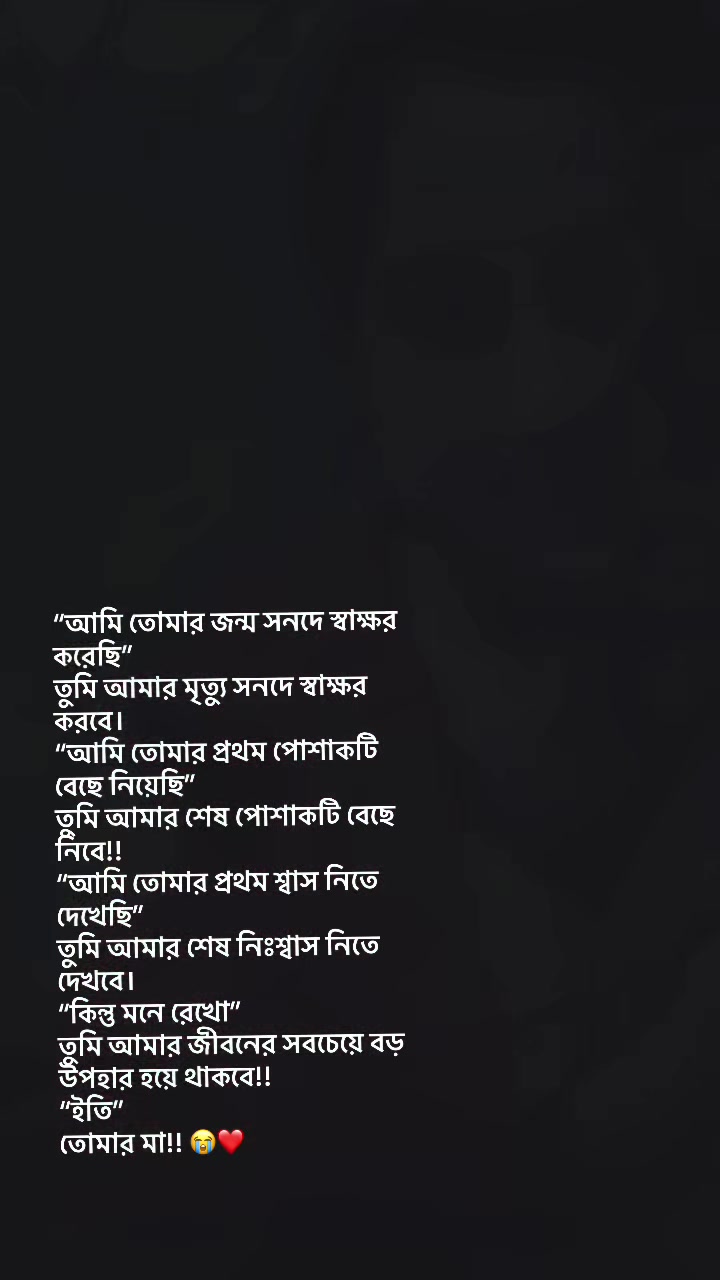 “আমি তোমার জন্ম সনদে স্বাক্ষর
করেছি”
তুমি আমার মৃত্যু সনদে স্বাক্ষর
করবে।
“আমি তোমার প্রথম পোশাকটি
বেছে নিয়েছি”
তুমি আমার শেষ পোশাকটি বেছে
নিবে!!
“আমি তোমার প্রথম শ্বাস নিতে
দেখেছি”
তুমি আমার শেষ নিঃশ্বাস নিতে
দেখবে।
“কিন্তু মনে রেখো”
তুমি আমার জীবনের সবচেয়ে বড়
উপহার হয়ে থাকবে!!
“ইতি”
তোমার মা!! 😭❤️